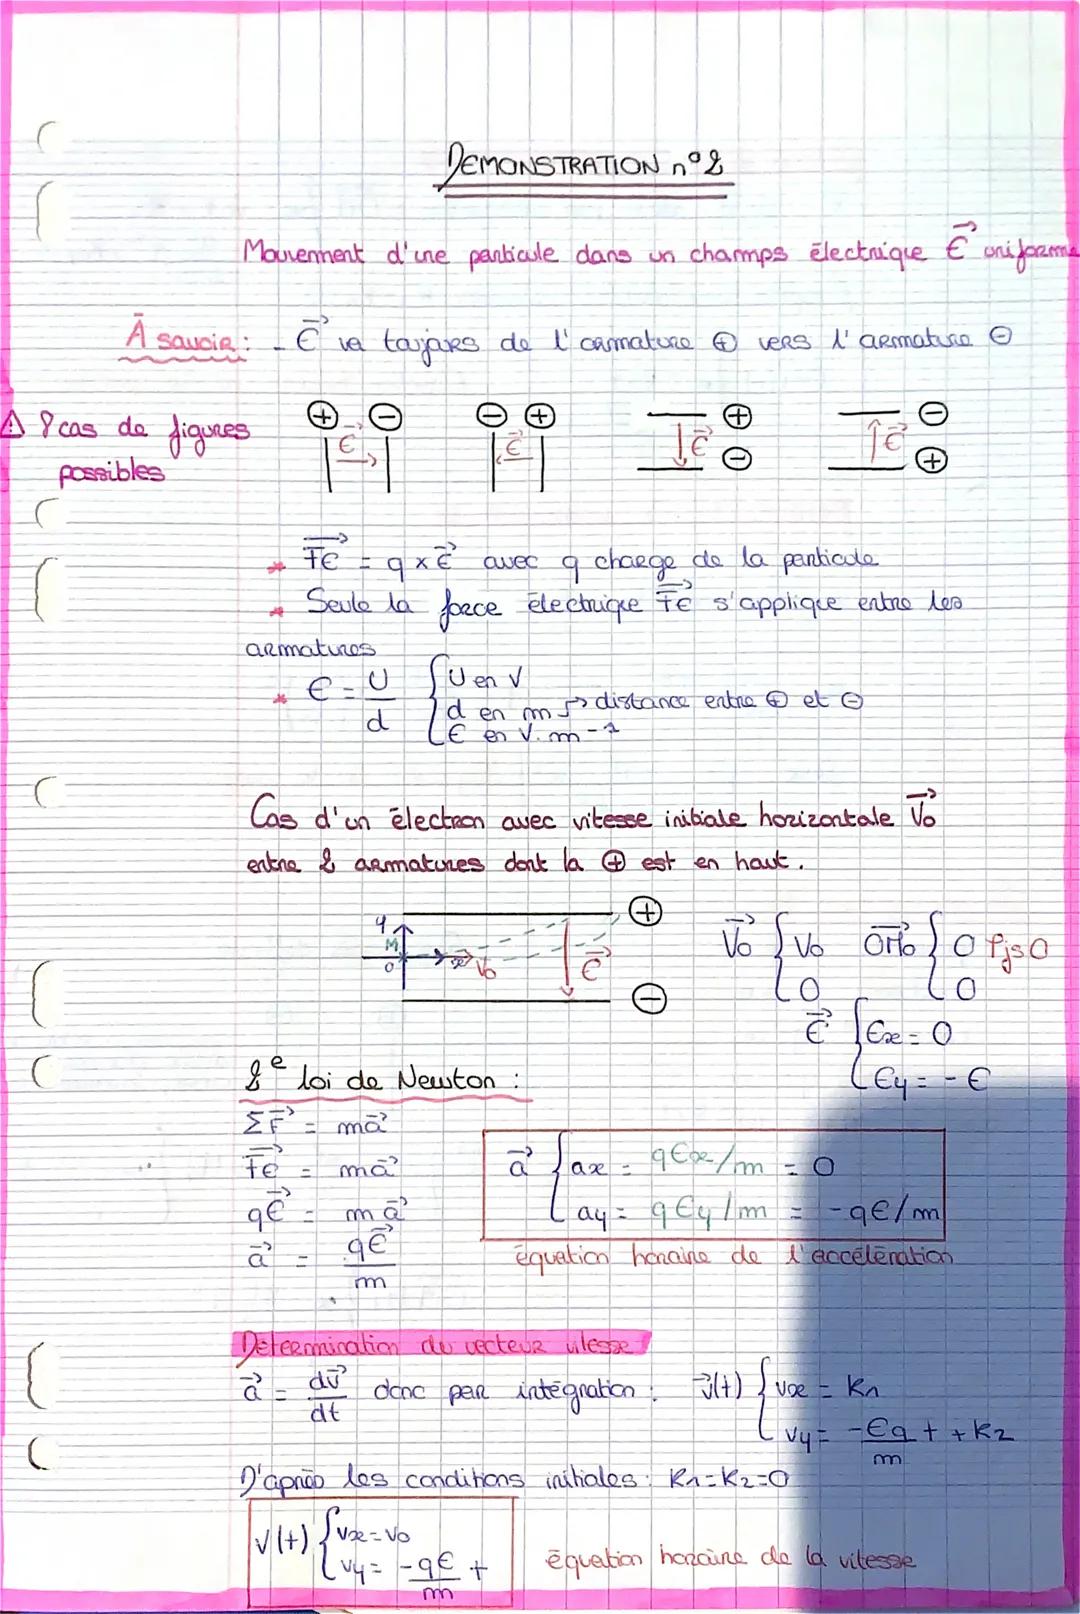 DEMONSTRATION n°2
Mouvement d'une particule dans un champs électrique E⃗ uniforme
À savoir : - E⃗ va toujours de l'armature ⊕ vers l'armature ⊖
⚠ 8 cas de figures
possibles
⊕ ⊖ ⊖ ⊕ ⊕ ⊖
E⃗ E⃗ E⃗ E⃗
⊖ ⊕
* F⃗e = q x E⃗ avec q charge de la particule
* Seule la force électrique F⃗e s'applique entre les
armatures
* E = U/d { U en V
d en m → distance entre ⊕ et ⊖
E en V.m-1
Cas d'un électron avec vitesse initiale horizontale V⃗o
entre 2 armatures dont la ⊕ est en haut.
y M O x V⃗o E⃗ ⊕ ⊖
V⃗o { Vo
0
OM⃗o { 0 tjs 0
0
E⃗ { Ex = 0
Ey = -E
2e loi de Newton :
ΣF⃗ = ma⃗
F⃗e = ma⃗
qE⃗ = ma⃗
a⃗ = qE⃗/m
a⃗ { ax = qEx/m = 0
ay = qEy/m = -qE/m
équation horaire de l'accélération
Détermination du vecteur vitesse
a⃗ = dv⃗/dt donc par intégration : v⃗(t) { vx = K1
vy = -Eq/m t + K2
D'après les conditions initiales : K1=K2=0
v(t) { vx = vo
vy = -qE/m t
équation horaire de la vitesse